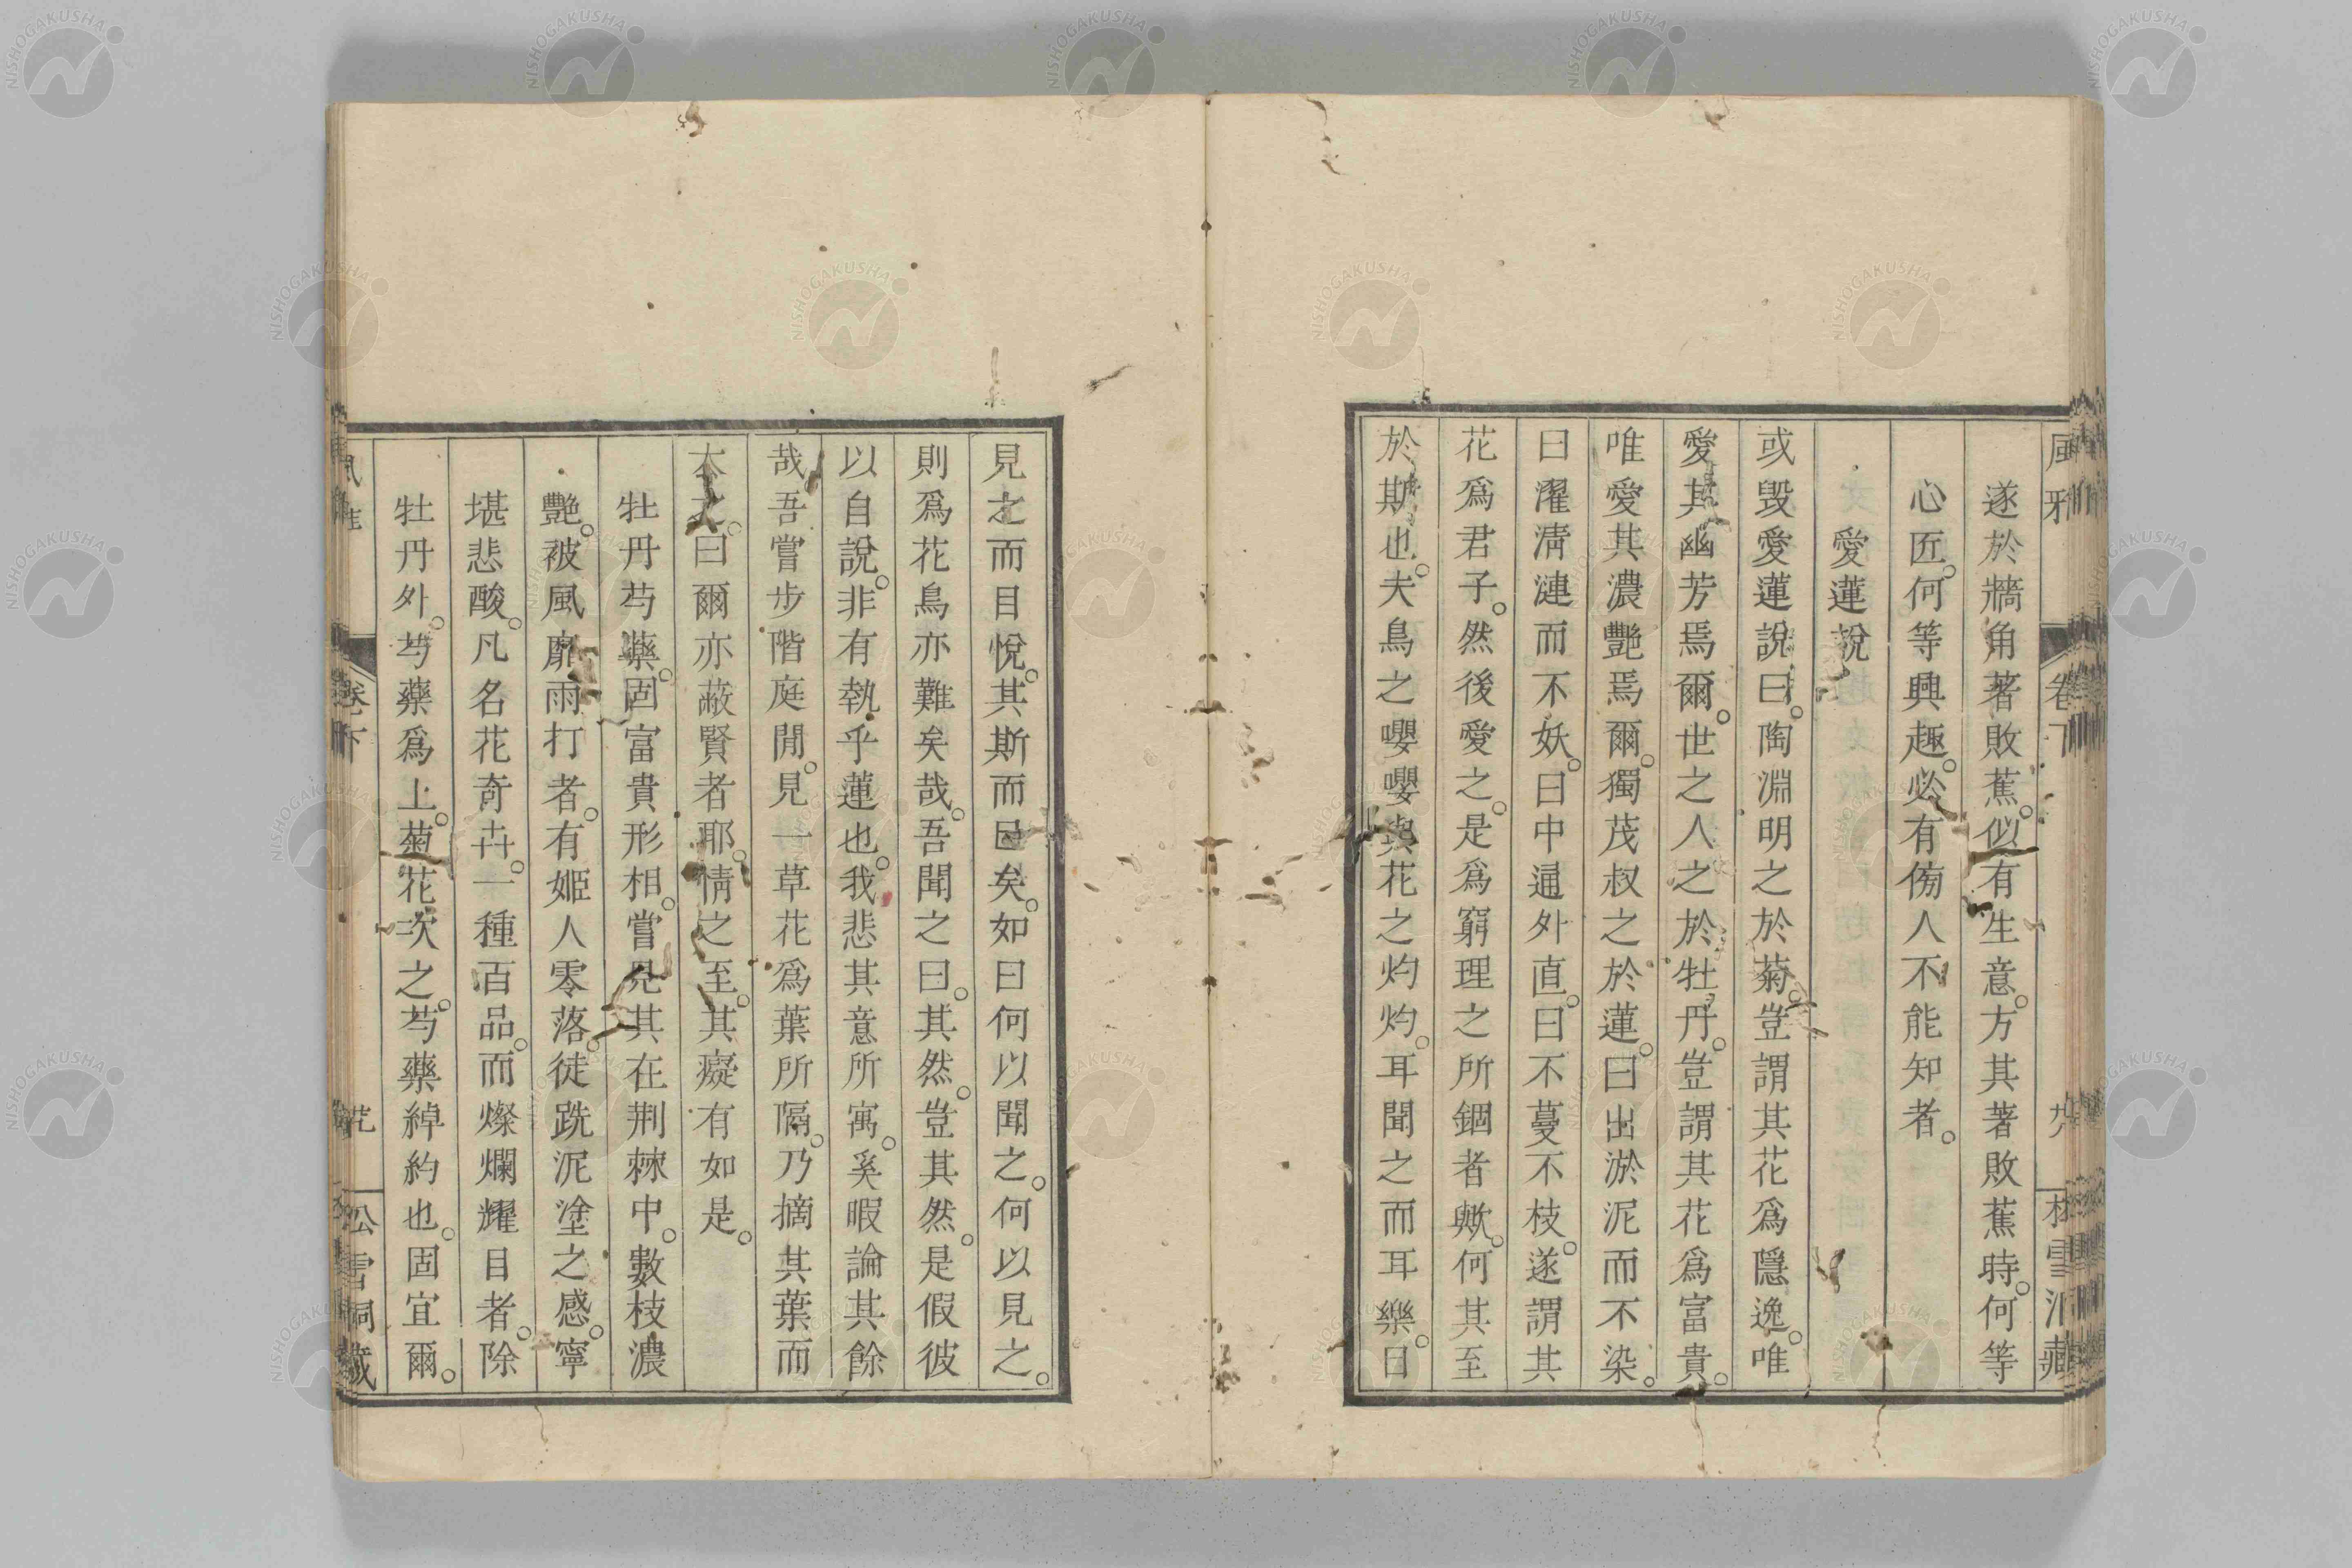 遂於牆角著敗蕉。似有生意。方其著敗蕉時。何等
心匠。何等興趣。必有傍人不能知者。
愛蓮說
或毀愛蓮說曰。陶淵明之於菊。豈謂其花爲隱逸。唯
愛其幽芳焉爾。世之人之於牡丹。豈謂其花爲富貴。
唯愛其濃艷焉爾。獨茂叔之於蓮。曰出淤泥而不染。
曰濯淸漣而不妖。曰中通外直。曰不蔓不枝。遂謂其
花爲君子。然後愛之。是爲窮理之所錮者歟。何其至
於斯也。夫鳥之嚶嚶與花之灼灼。耳聞之而耳樂。目
見之而目悅。其斯而已矣。如曰何以聞之。何以見之。
則爲花鳥亦難矣哉。吾聞之曰。其然。豈其然。是假彼
以自說。非有執乎蓮也。我悲其意所寓。奚暇論其餘
哉。吾嘗步階庭閒。見一草花爲葉所隔。乃摘其葉而
太之。曰爾亦蔽賢者耶。情之至。其癡有如是。
牡丹芍藥。固富貴形相。嘗見其在荆棘中。數枝濃
艷。被風靡雨打者。有姬人零落。徒跣泥塗之感。寧
堪悲酸。凡名花奇卉。一種百品。而燦爛耀目者。除
牡丹外。芍藥爲上。菊花次之。芍藥綽約也。固宜爾。
卷下
松雪洞藏